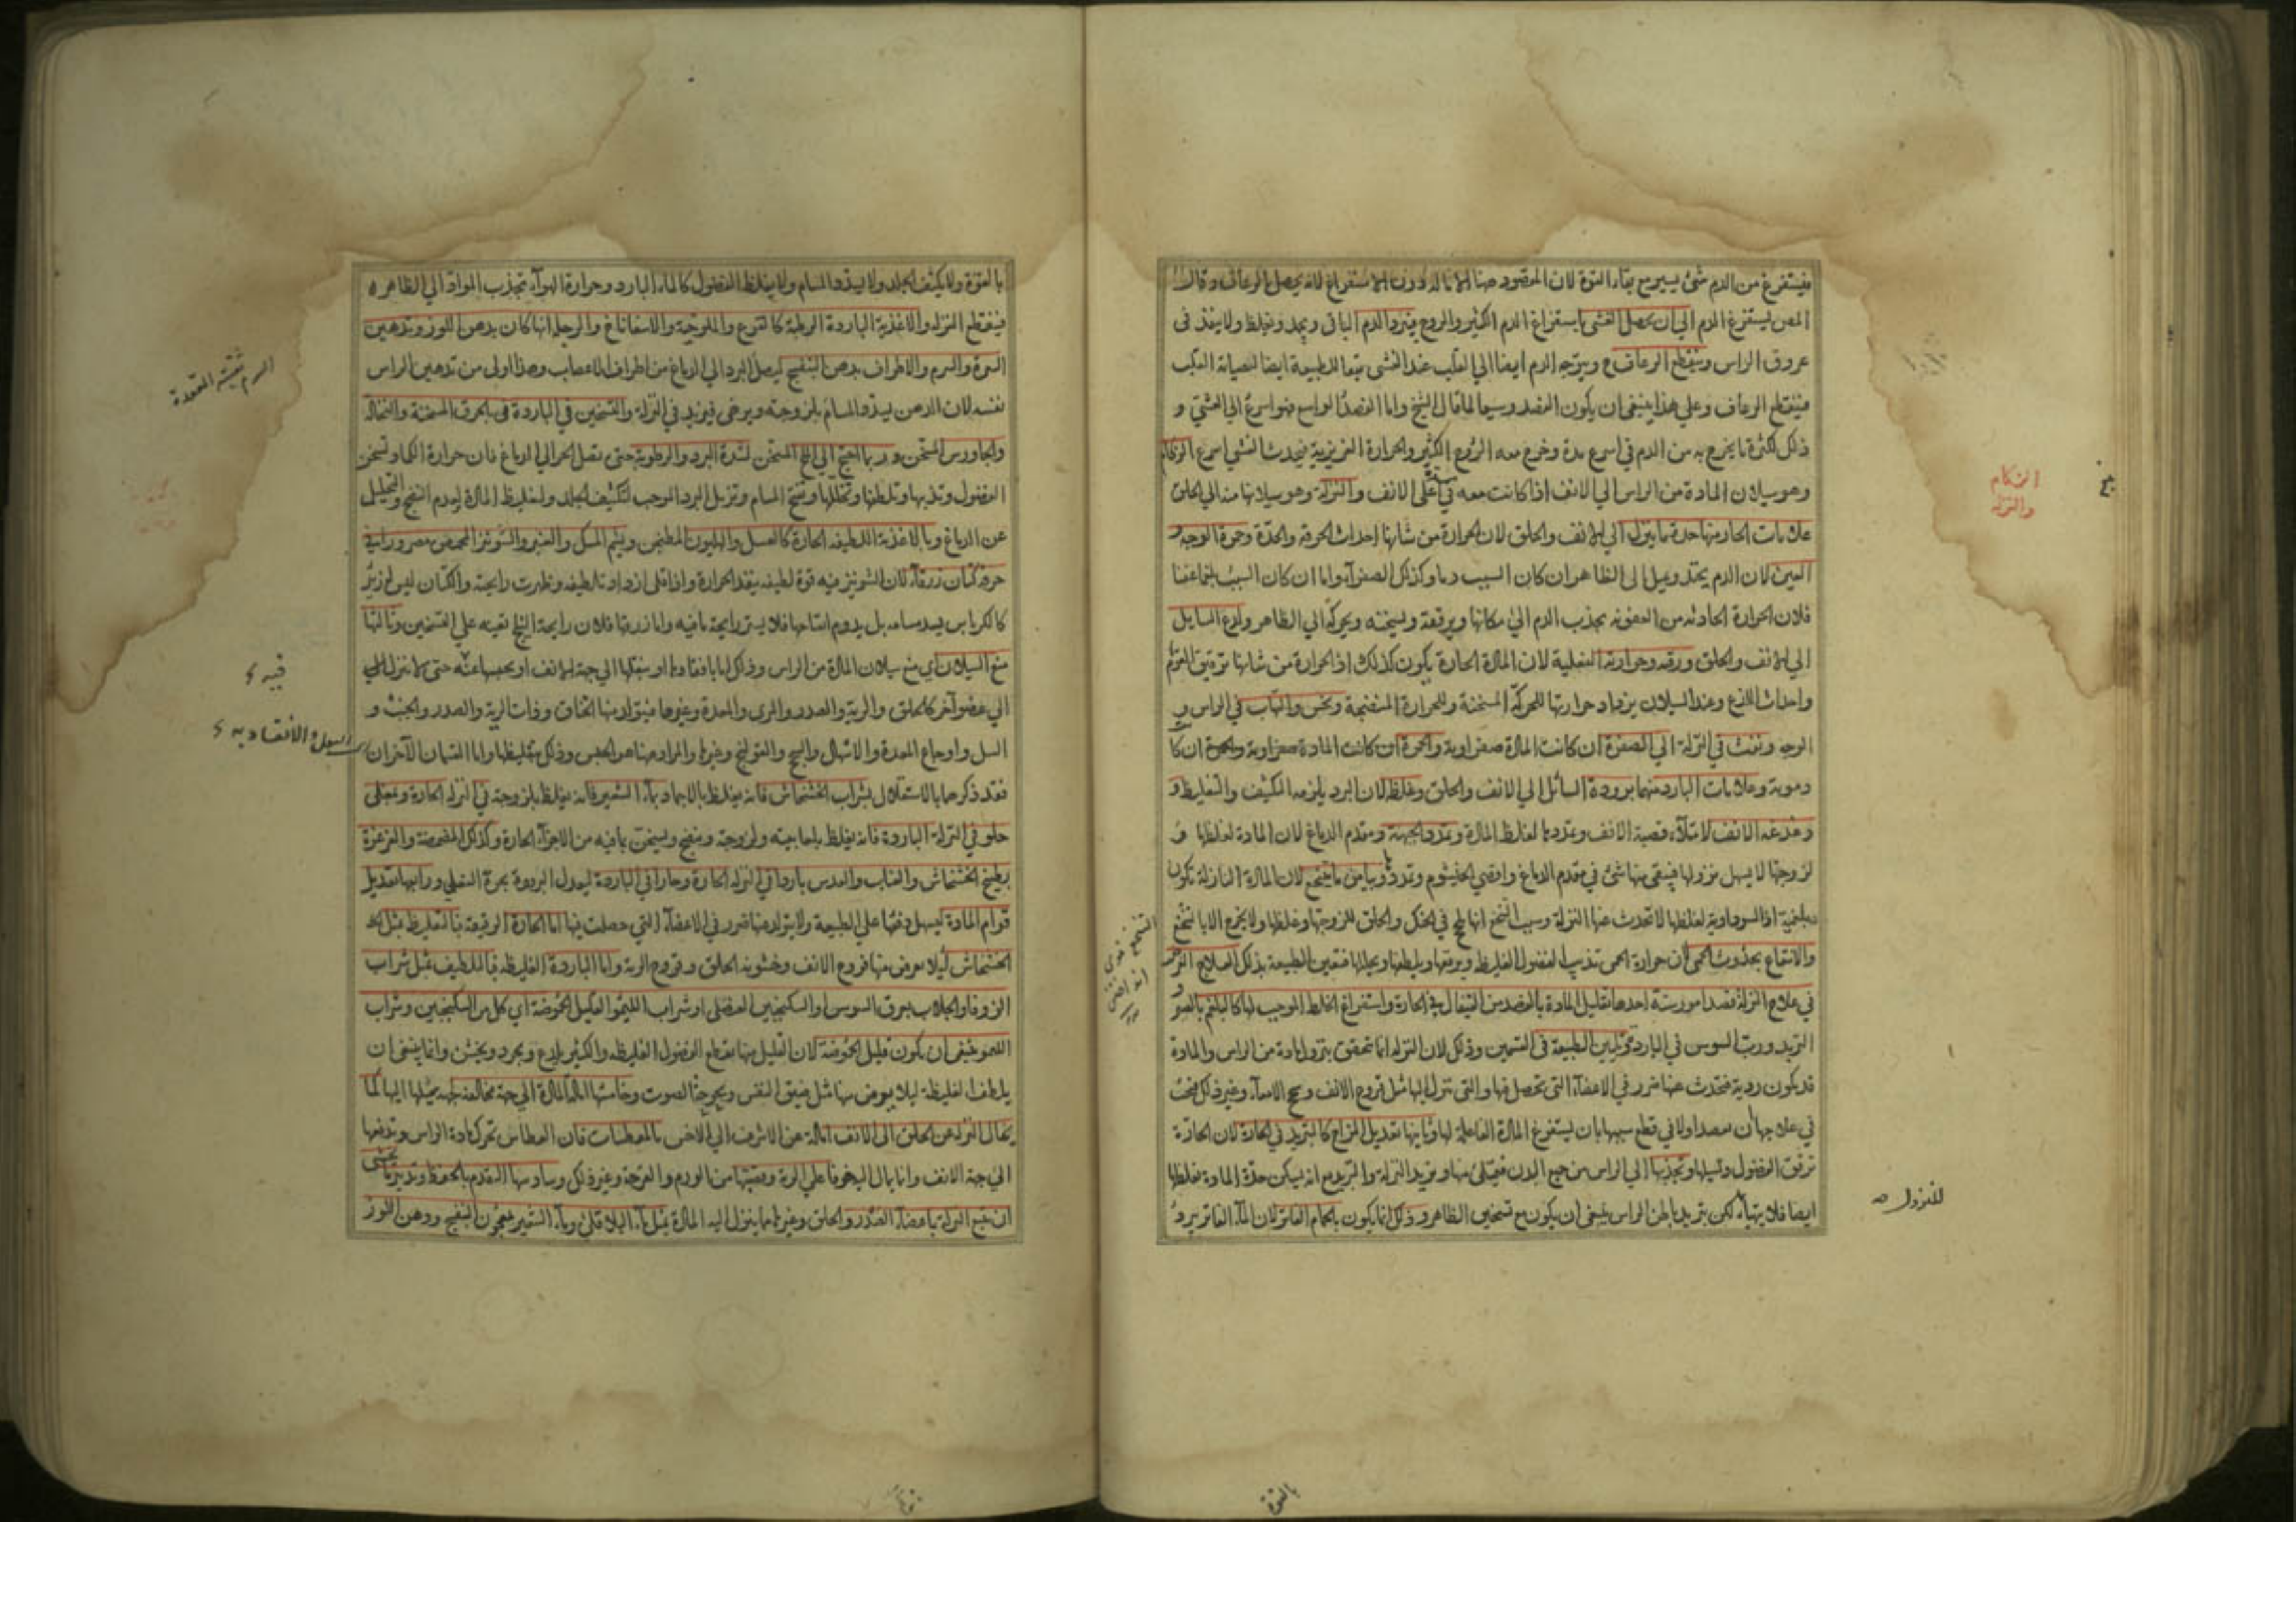 فيستفرغ من الدم شئ يسير مع بقاء القوة لان المقصود هنا الامالة دون الاستفراغ لانه يحصل الرعاف وقال
المص ليستفرغ الدم الي ان يحصل الغشى باستفراغ الدم الكثير والروح فيبرد الدم الباقى ويجمد ويغلظ ولا ينفذ فى
عروق الراس وينقطع الرعاف ويتوجه الدم ايضا الي القلب عند الغشى تبعا للطبيعة ايضا لصيانة القلب
فينقطع الرعاف وعلي هذا ينبغى ان يكون الفصد وسيعا لما قال الشيخ واما الفصد الواسع فهو اسرع الي الغشى و
ذلك لكثرة ما يخرج به من الدم في اسرع مدة وخرج معه الروح الكثير والحرارة الغريزية فيحدث الغشي اسرع الزكام
وهو سيلان المادة من الراس الي الانف اذا كانت معه والنزلة وهو سيلانها منه الي الحلق
علامات الحار منها حدة ما ينزل الي الانف والحلق لان الحرارة من شانها احداث الحرقة والحدة وحمرة الوجه و
العين لان الدم يحتد ويميل الى الظاهر ان كان السبب دما وكذلك الصفرآء واما ان كان السبب بلغما عفنا
فلان الحرارة الحادثه من العفونه يجذب الدم الي مكانها ويرققه ويسخنه ويحركه الي الظاهر ولذع السايل
الي الانف والحلق ورقته وحرارته الفعلية لان المادة الحارة يكون كذلك اذ الحرارة من شانها ترقيق القوام
واحداث اللذع وعند السيلان يزداد حرارتها للحركة المسخنة وللحرارة المنضجة ونخس والتهاب في الراس و
الوجه ونفث في النزلة الي الصفرة ان كانت المادة صفراوية والحمرة ان كانت المادة ان كا
دموية وعلامات البارد منهما برودة السائل الي الانف والحلق وغلظه لان البرد يلزمه التكثيف والتغليظ و
دغدغة الانف لامتلاء قصبة الانف وتمددها لغلظ المادة وتمدد الجبهة ومقدم الدماغ لان المادة لغلظها و
لزوجتها لا يسهل نزولها فيبقى منها شئ في مقدم الدماغ واقصي الخيشوم وتمدد وبياض ما يتنخع لان المادة النازلة تكون
بلغمية اذ السوداوية لغلظها لا تحدث عنها النزلة وسبب التنخع انها تلج في الحنك والحلق للزوجتها وغلظها ولا يخرج الا بالتنخع
والانتفاع بحدوث الحمى لان حرارة الحمى تذيب الفضول الغليظه ويرققها ويلطفها ويحللها فتعين الطبيعة بذلك العلاج الغرض
في علاج النزلة قصد امور ستة احدها تقليل المادة بالفصد من القيفال في الحارة واستفراغ الخلط الموجب لها كالبلغم بالقو
التربد ورب السوس في الباردة وتليين الطبيعة في القسمين وذلك لان النزلة انما تتحقق بنزول مادة من الراس والمادة
قد يكون ردية فتحدث عنها ضرر في الاعضآء التى تحصل فيها والتى تنزل اليها مثل قروح الانف وسحج الامعاء وغير ذلك فيجب
في علاجها ان نقصد اولا في قطع سببها بان يستفرغ المادة الفاعلة لها وثانيها تعديل المزاج كالتبريد في الحارة لان الحارة
ترقق الفضول وتسيلها وتجذبها الي الراس من جميع البدن فيمتلئ منها ويزيد النزلة والتبريد مع انه يسكن حدة المادة يغلظها
ايضا فلا يتهيأ لكن تبريد باطن الراس ينبغي ان يكون مع تسخين الظاهر وذلك انما يكون بالحمام الفاتر لان المآء الفاتر يبرد
الزكام
والنزله
للنزول صه
بالقوة
بالقوة ولا يكثف الجلد ولا يسد المسام ولا يغلظ الفضول كالماء البارد وحرارة الهوآء تجذب المواد الي الظاهر
فينقطع النزله والاغذية الباردة الرطبة كالقرع والملوخية والاسفاناخ والرجله انها كان بدهن اللوز وتدهين
السرة والسرم والاطراف بدهن البنفسج ليصل البرد الي الدماغ من اطراف الاعصاب وهذا اولى من تدهين الراس
نفسه لان الدهن يسد المسام بلزوجته ويرخى فيزيد في النزلة والتسخين في الباردة فى بالخرق المسخنة والنخالة
والجاورس المسخن وربما احتيج الي الملح المسخن لشدة البرد والرطوبة حتى تصل الحر الي الدماغ فان حرارة الكماد تسخن
الفضول وتذيبها وتلطفها وتحللها وتفتح المسام وتزيل البرد الموجب لتكثيف الجلد ولتغليظ المادة لعدم النضج والتحليل
عن الدماغ وبالاغذية اللطيفه الحارة كالعسل والهليون المطجن ويشم المسك والعنبر والشونيز المحمص مصرورا في
خرقة كتان زرقآء لان الشونيز فيه قوة لطيفه ينفذ الحرارة واذا قلى ازداد تلطيفه وظهرت رايحته والكتان ليس له زئبر
كالكرباس يسد مسامه بل يدوم انتاجها فلا يستر رايحة ما فيه واما زرقتها فلان رايحة النيل تقيه علي التسخين وثالثها
منع السيلان اي منع سيلان المادة من الراس وذلك اما بانفادها او بنقلها الي جهة الانف او بحبسها عنه حتى لا تنزل الي
الي عضو آخر كالحلق والرية والصدر والمرى والمعدة وغيرها فيتولد منها الخناق وذات الرية والصدر والجنب و
السل واوجاع المعدة والاسهال والسحج والقولنج وغيرها والمراد هنا هو الحبس وذلك بتغليظها واما القسمان الآخران
فقد ذكرهما بالاستقلال بشراب الخشخاش فانه يغلظ بالاجماد بمآء الشعير فانه يغلظ بلزوجته في النزله الحارة ومغلى
حلو في النزلة الباردة فانه يغلظ بلعابيته ولزوجته وينضج ويسخن بما فيه من الاجزآء الحارة وكذلك المضمضة والغرغرة
بطبيخ الخشخاش والعناب والعدس باردا في النزله الحارة وحارا في الباردة ليعدل البرودة بحرة الفعلي ورابعها تعديل
قوام المادة ليسهل دفعها علي الطبيعة ولا يتولد عنها ضرر في الاعضآء التي حصلت فيها اما الحارة الرقيقة بالتغليظ بمثل
الخشخاش ليلا يعرض منها قروح الانف وخشونة الحلق وقروح الرية واما الباردة الغليظه فبالتلطيف بمثل شراب
الزوفا والجلاب بعرق السوس والسكنجبين العنصلي او شراب الليمو القليل الحموضة اي كل من السكنجبين وشراب
الليمو ينبغى ان يكون قليل الحموضة لان القليل منها يقطع الفضول الغليظه والكثير يلذع ويجرد ويخشن وانما ينبغي ان
يلطف الغليظة ليلا يعرض منها مثل ضيق النفس وبحوحة الصوت وخامسها امالة المادة الي جهة مخالفة لجهة يميلها اليها كما
يمال النزله عن الحلق الى الانف امالة عن الاشرف الي الاخس بالمعطسات فان العطاس تحرك مادة الراس وتدفعها
الي جهة الانف وانما يمال اليه خوفا علي الرية وقصبتها من الورم والقرحة وغير ذلك وسادسها التقدم بالحفظ وتدبير ما يخشى
ان تتبع النزلة باعضآء الصدر والحلق وغيرها مما ينزل اليه المادة بمثل مآء الباقلي ومآء الشعير بمعجون البنفسج ودهن اللوز
السرم ثقبته المقعدة
فيه